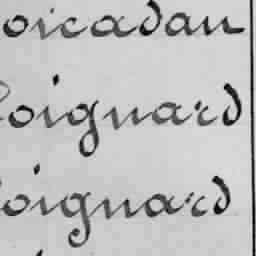 oicadan
oignard
oignard